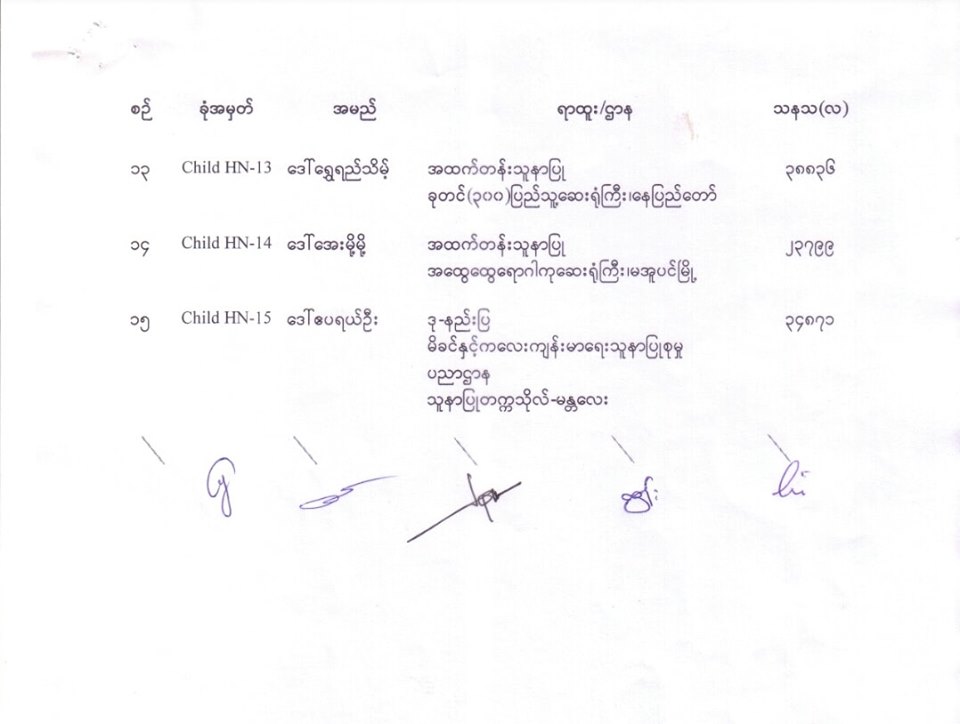 စဉ် ခုံအမှတ် အမည် ရာထူး/ဌာန သနသ(လ)
၁၃ Child HN-13 ဒေါ်ရွှေရည်သိမ့် အထက်တန်းသူနာပြု ၃၈၈၃၆
ခုတင်(၃၀၀)ပြည်သူ့ဆေးရုံကြီး၊နေပြည်တော်
၁၄ Child HN-14 ဒေါ်အေးမို့မို့ အထက်တန်းသူနာပြု ၂၃၇၉၉
အထွေထွေရောဂါကုဆေးရုံကြီး၊မအူပင်မြို့
၁၅ Child HN-15 ဒေါ်ဧပရယ်ဦး ဒု-နည်းပြ ၃၄၈၇၁
မိခင်နှင့်ကလေးကျန်းမာရေးသူနာပြုစုမှု
ပညာဌာန
သူနာပြုတက္ကသိုလ်-မန္တလေး